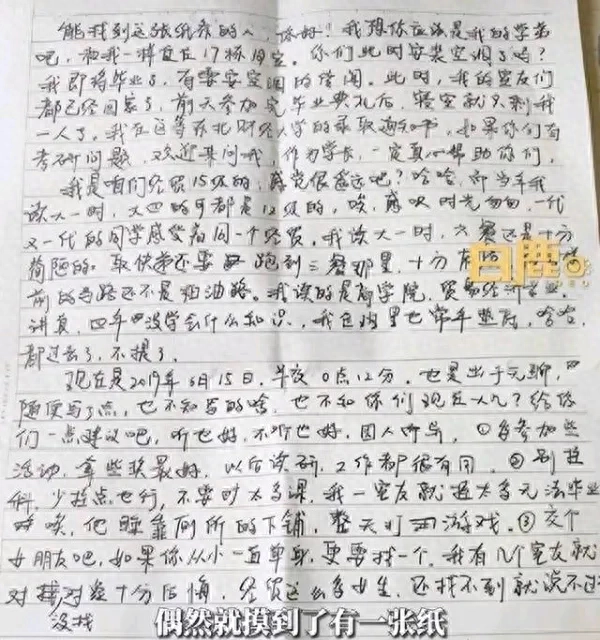 能找到这张纸条的人，你好！我想你应该是我的学弟
吧，和我一样住在17栋宿舍。你们此时安装空调了吗？
我即将毕业了，有要安空调的传闻。此时，我的室友们
都已经回家了，前天参加完毕业典礼后，寝室就只剩我
一人了。我在这等东北财经大学的录取通知书，如果你们有
考研问题，欢迎来问我，作为学长，一定真心帮助你们。
我是咱们经贸15级的，感觉很遥远吧？哈哈，即当年我
读大一时，大四的可都是12级的，唉，感叹时光匆匆，一代
又一代的同学感受着同一个经贸。我读大一时，六餐还是十分
简陋的。取快递还要跑到三餐那里，十分
前的马路还不是柏油路。我读的是商学院，贸易经济专业。
讲真，四年中没学会什么知识，我在班里也常年垫底，哈哈，
都过去了，不提了。
现在是2019年6月15日，半夜0点12分，也是出于无聊，
随便写了点，也不知写的啥，也不知你们现在大几？给你
们一点建议吧，听也好，不听也好，因人而异，①多参加些
活动，拿些奖最好，以后读研、工作都很有用。②别挂
科，少挂点也行，不要挂太多课，我一室友就挂太多无法毕业
唉，他睡靠厕所的下铺，整天打游戏。③交个
女朋友吧，如果你从小一直单身，更要找一个，我有几个室友就
对没找对象十分后悔，经贸这么多女生，还找不到就说不过
白鹿
偶然就摸到了有一张纸